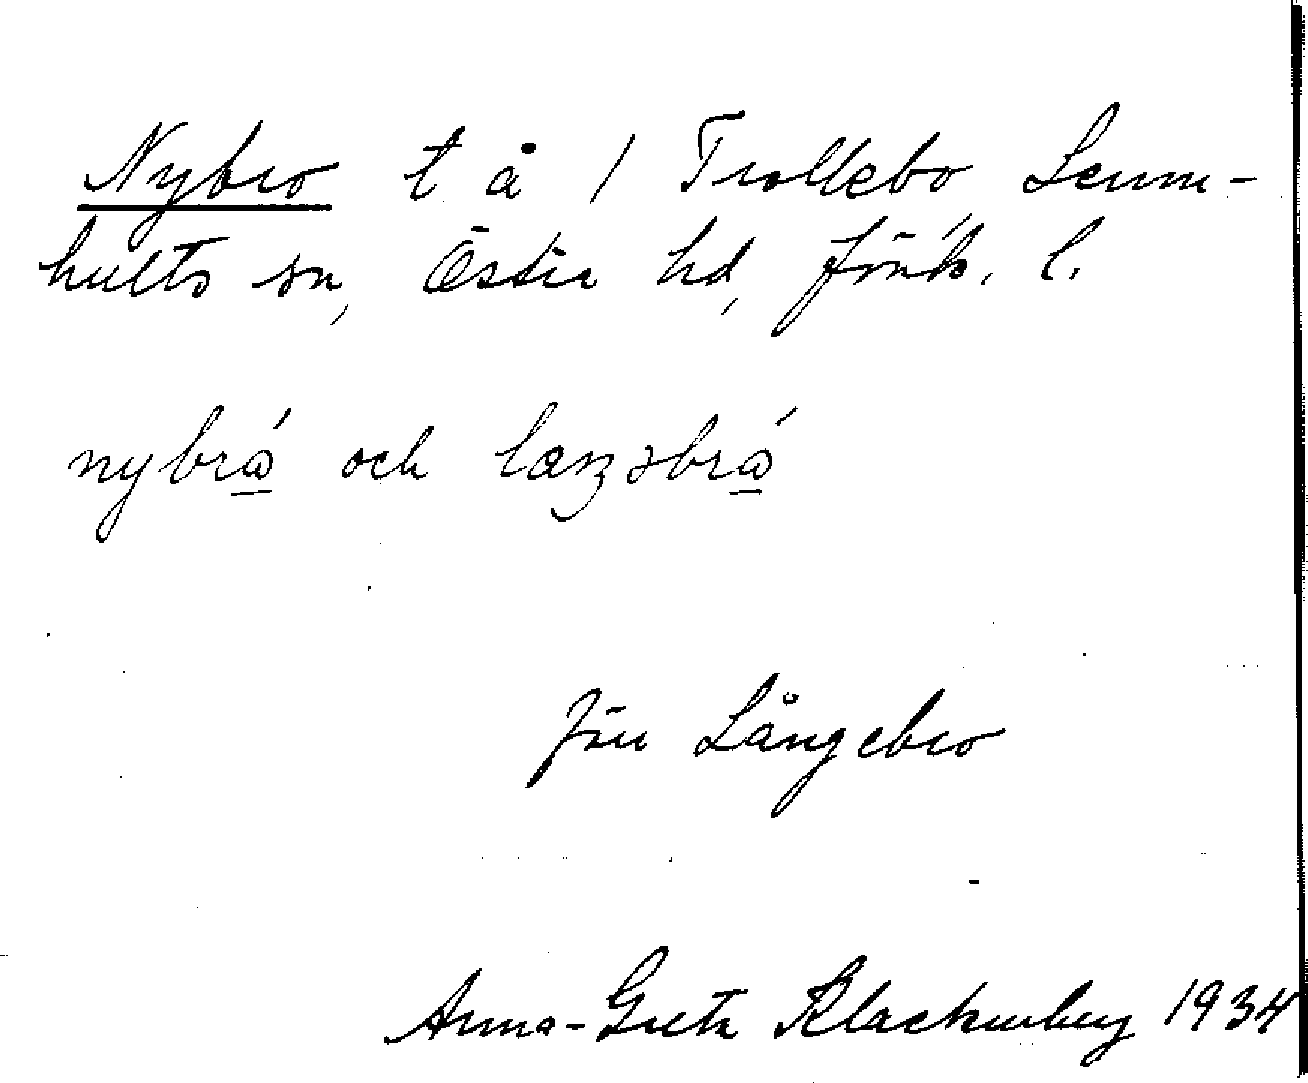 Nybro t å / Trollebo Lemn-
hults sn, Östra hd, Jönk. l.
nybrá och laŋəbrá
Jfr Långebro
Anna-Greta Klackenberg 1934